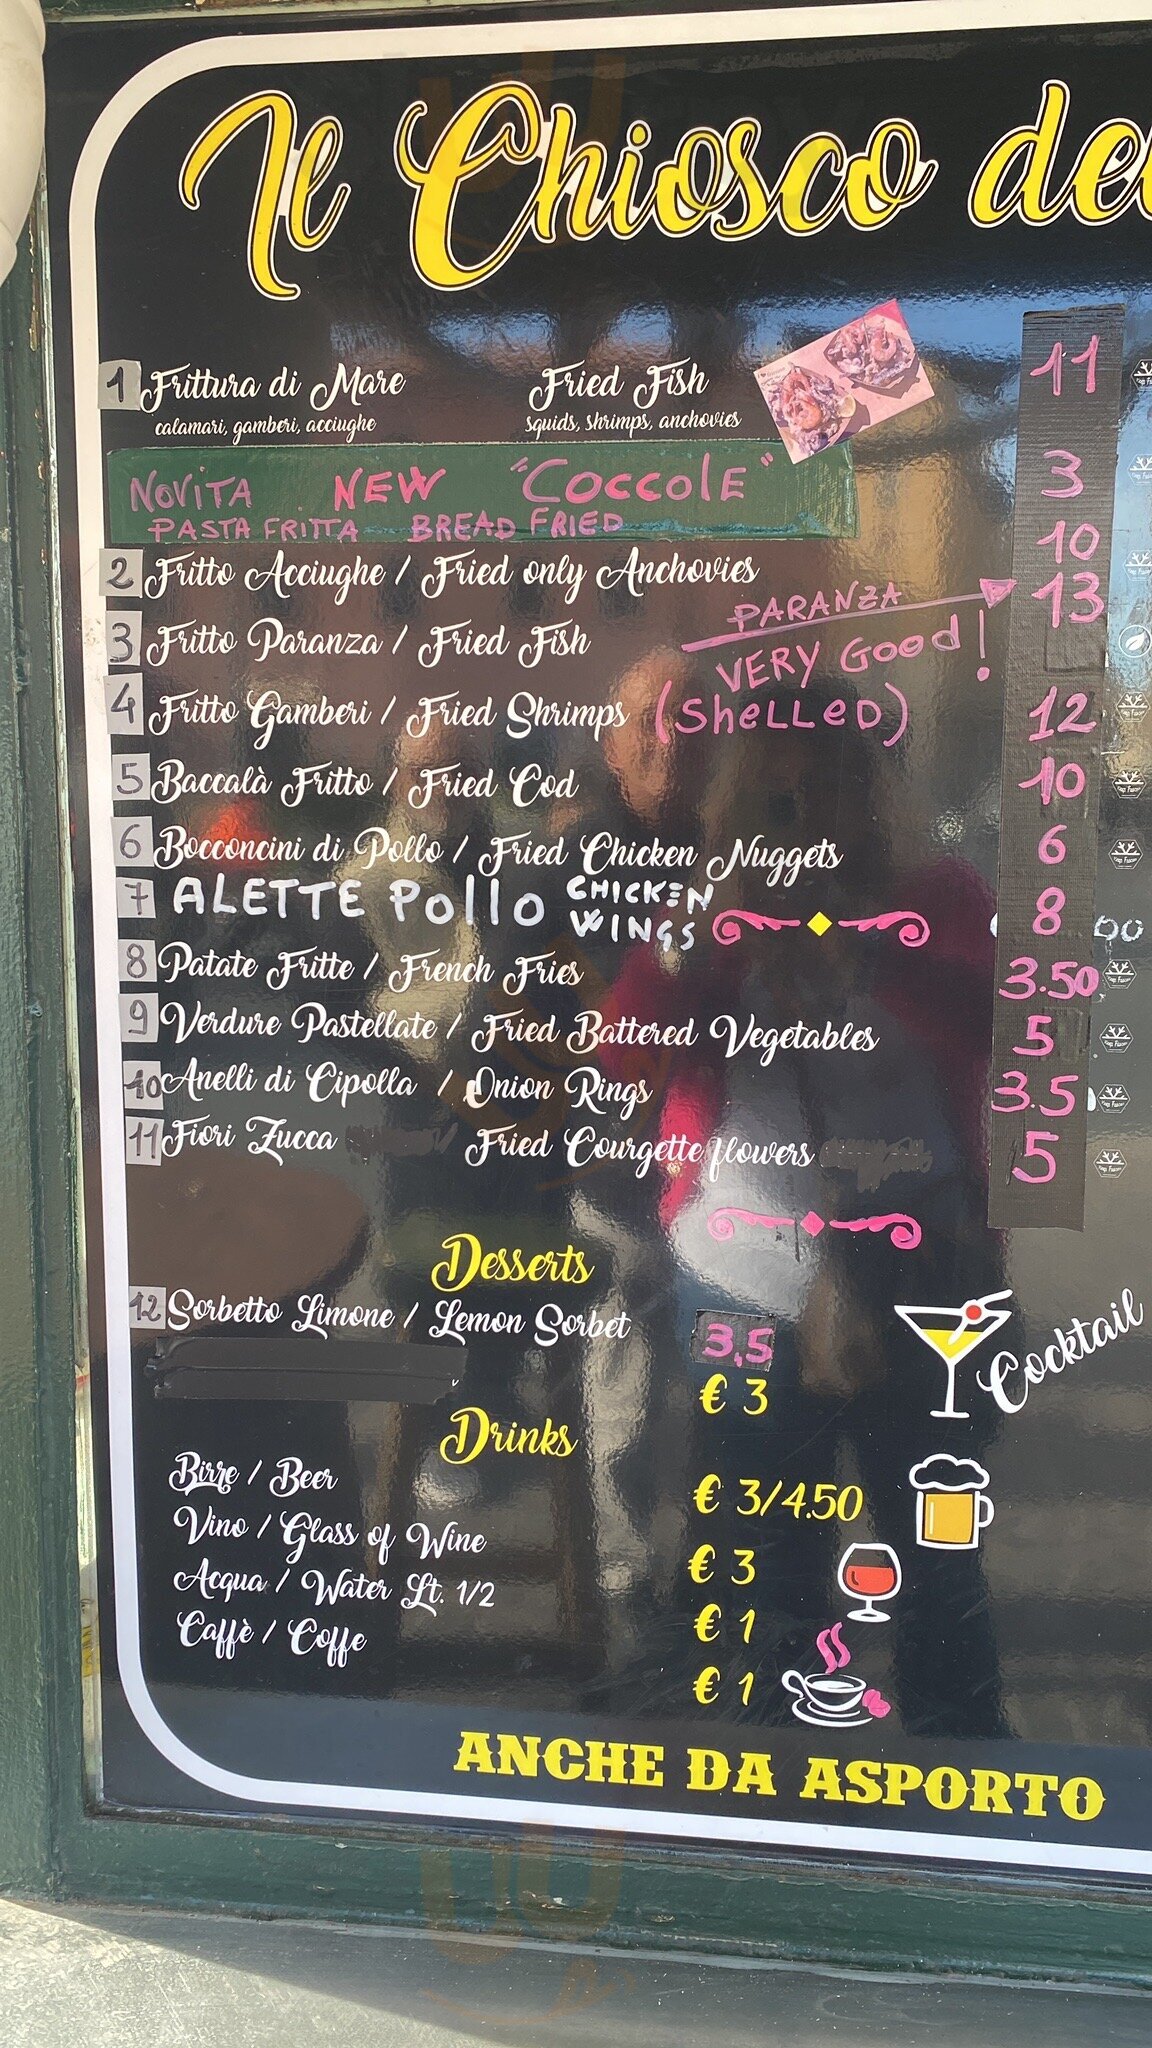 Il Chiosco del
1 Frittura di Mare Fried Fish 11
calamari, gamberi, acciughe squids, shrimps, anchovies
NOVITA NEW "COCCOLE" 3
PASTA FRITTA BREAD FRIED
2 Fritto Acciughe / Fried only Anchovies 10
PARANZA 13
3 Fritto Paranza / Fried Fish VERY Good!
4 Fritto Gamberi / Fried Shrimps (SheLLeD) 12
5 Baccalà Fritto / Fried Cod 10
6 Bocconcini di Pollo / Fried Chicken Nuggets 6
7 ALETTE Pollo CHICKEN WINGS 8
8 Patate Fritte / French Fries 3.50
9 Verdure Pastellate / Fried Battered Vegetables 5
10 Anelli di Cipolla / Onion Rings 3.5
11 Fiori Zucca Fried Courgette flowers 5
Desserts
12 Sorbetto Limone / Lemon Sorbet 3,5
€ 3
Cocktail
Drinks
Birre / Beer € 3/4.50
Vino / Glass of Wine € 3
Acqua / Water Lt. 1/2 € 1
Caffè / Coffe € 1
ANCHE DA ASPORTO